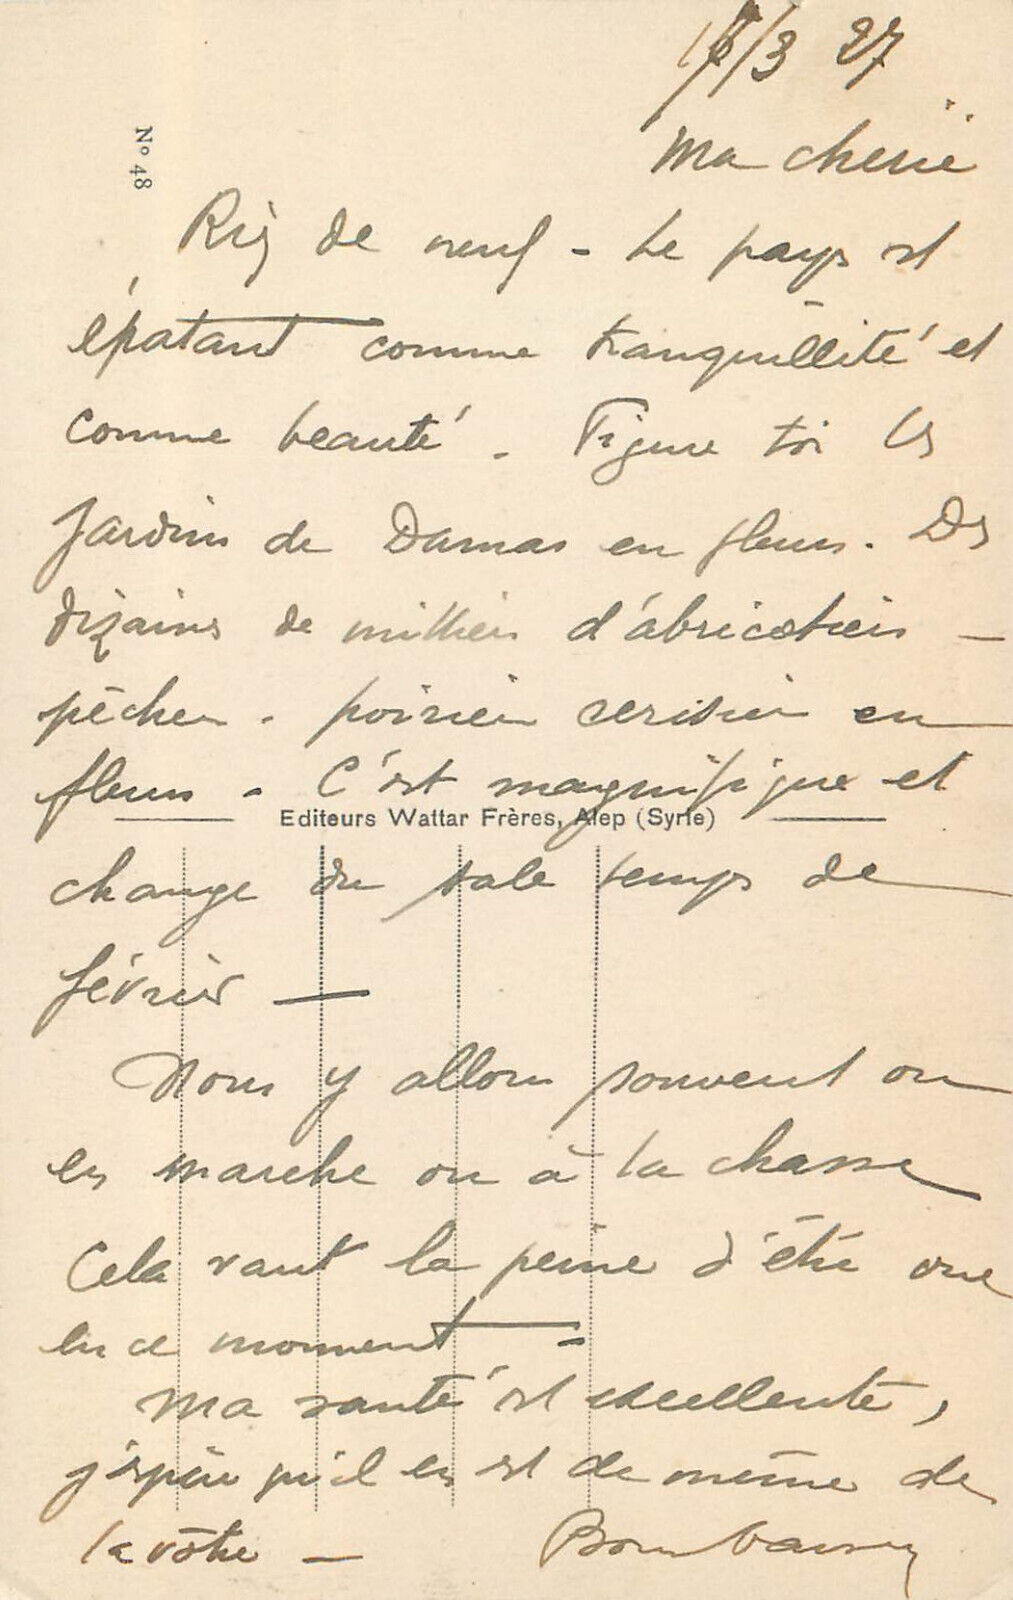 /3 27
Ma cherie
N° 48
Rien de neuf - Le pays est
épatant comme tranquillité et
comme beauté. Figure toi les
Jardins de Damas en fleurs. Des
dizaines de milliers d'abricotiers -
pêcher - poirier cerisier en
fleurs - C'est magnifique et
Editeurs Wattar Frères, Alep (Syrie)
change du sale temps de
février -
Nous y allons souvent ou
en marche ou à la chasse
Cela vaut la peine d'être vue
en ce moment -
Ma santé est excellente,
j'espère qu'il en est de même de
la vôtre -